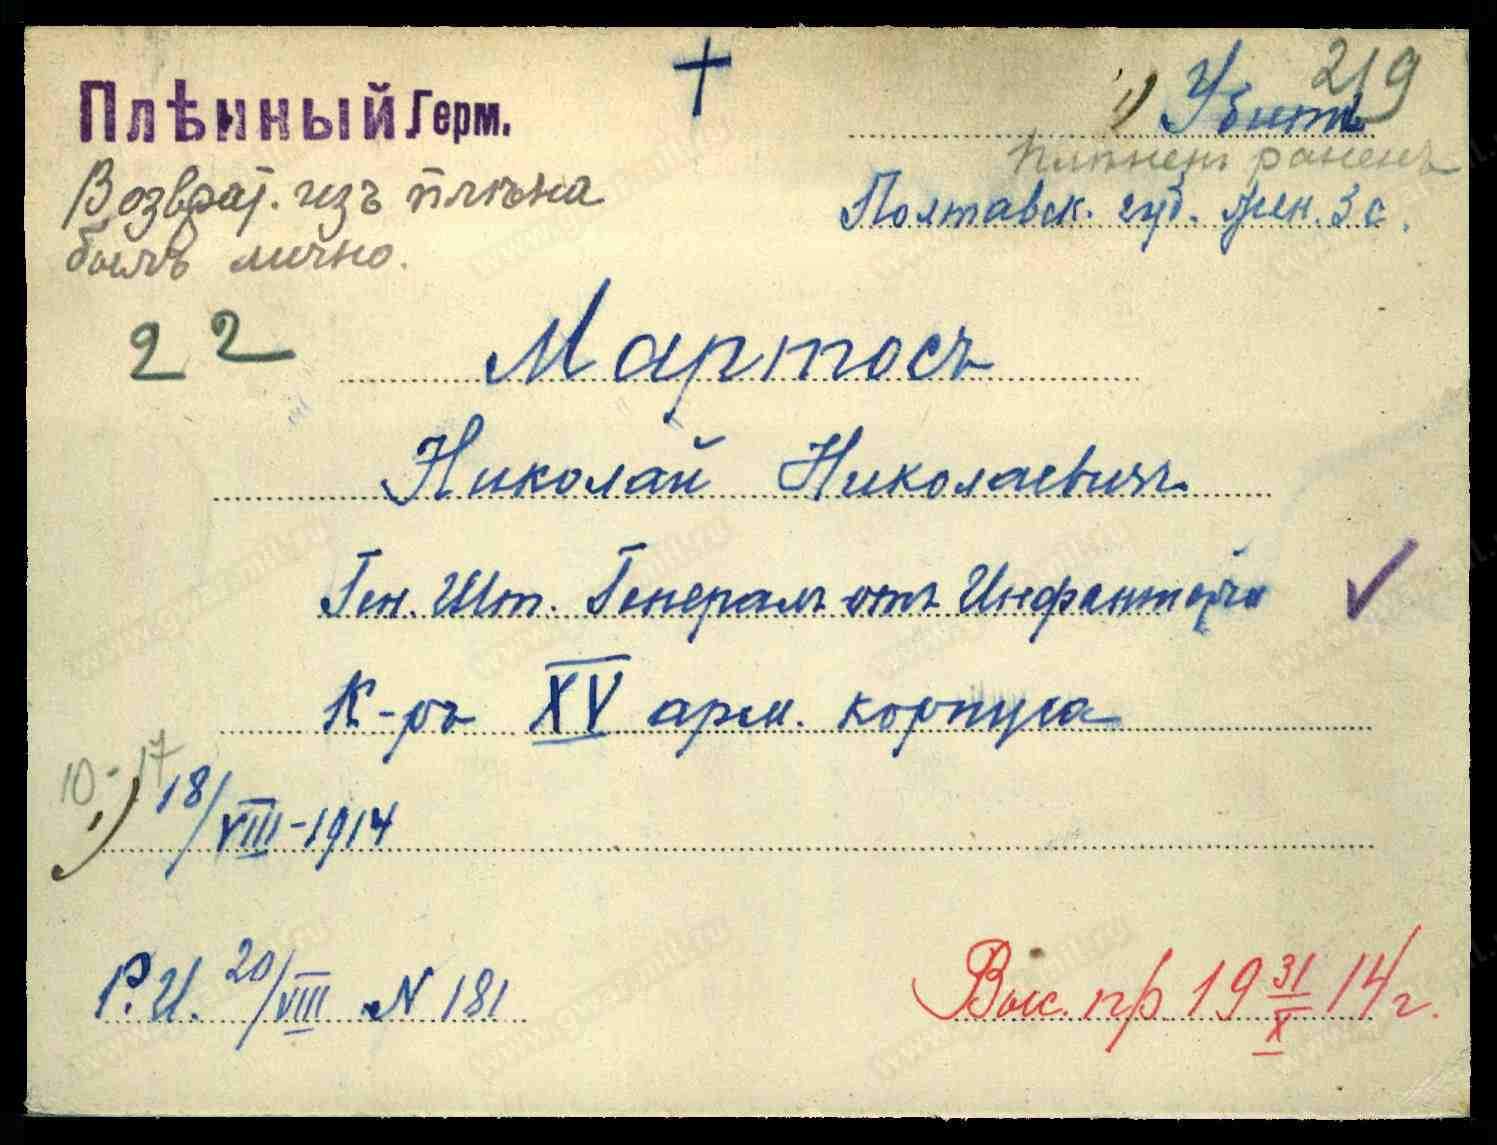 219
Плѣнный Герм.
1) Убитъ
плѣнен раненъ
Возврат. изъ плѣна
былъ лично.
Полтавск. губ. жен. 3 с.
22
Мартосъ
Николай Николаевичъ
Ген. Шт. Генералъ отъ Инфантеріи
К-ръ XV арм. корпуса
10-17
1) 18/VIII-1914
Р.И. 20/VIII N 181
Выс. пр 19 31/X 14 г.
www.gwar.mil.ru